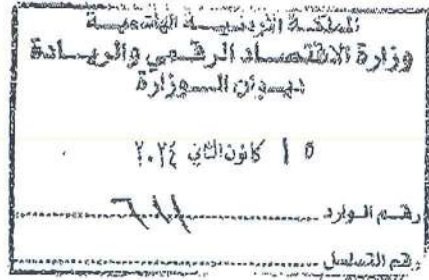 المملكة الأردنية الهاشمية
وزارة الاقتصاد الرقمي والريادة
ديوان الوزارة
١٥ كانون الثاني ٢٠٢٤
رقم الوارد ............ ٦١١ ............
رقم التسلسل ............